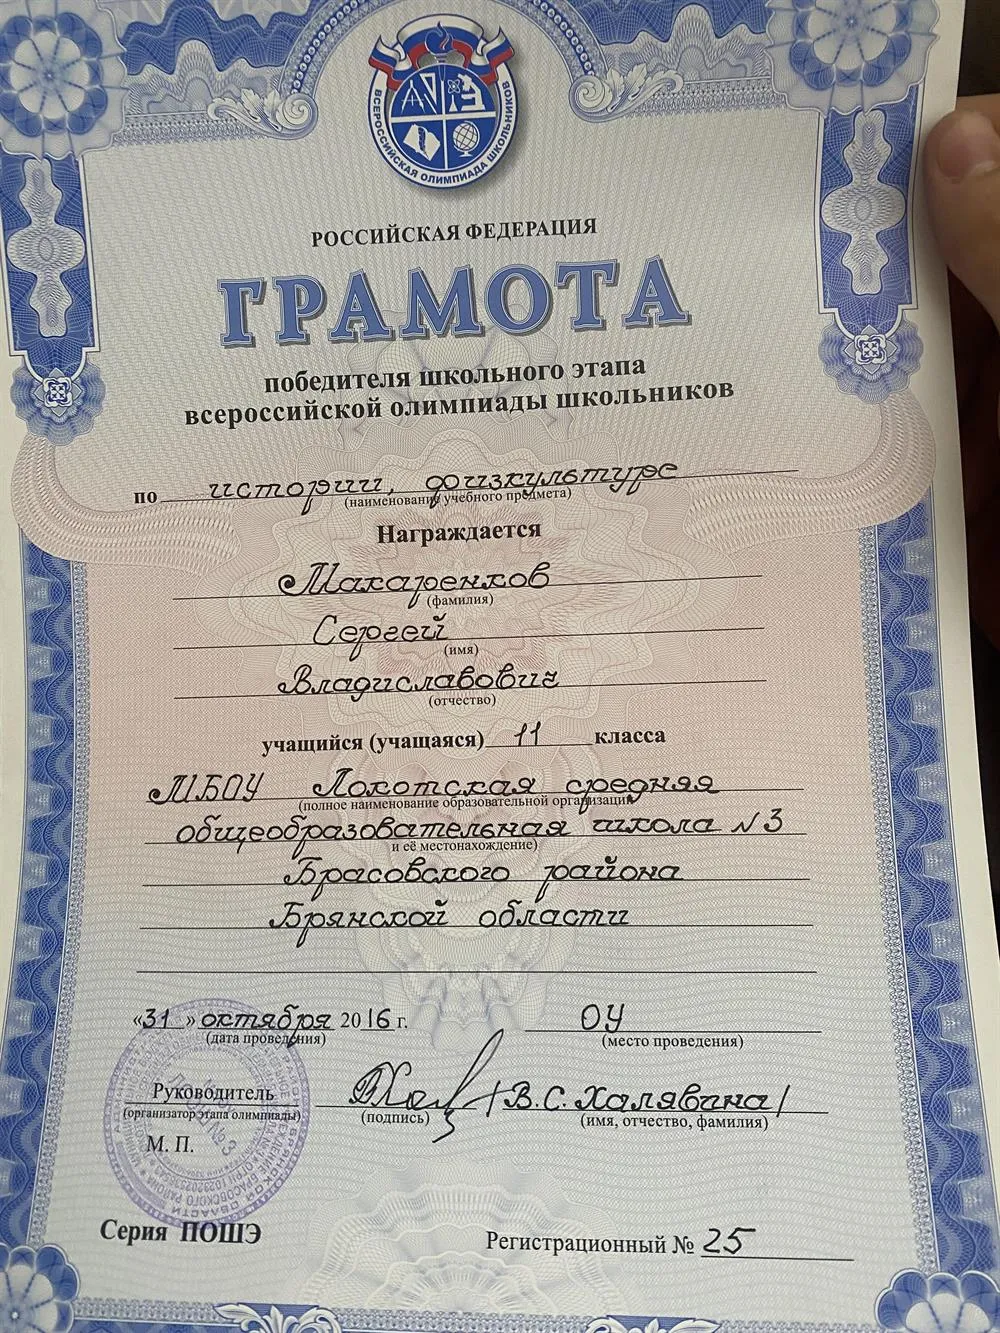 ВСЕРОССИЙСКАЯ ОЛИМПИАДА ШКОЛЬНИКОВ
РОССИЙСКАЯ ФЕДЕРАЦИЯ
ГРАМОТА
победителя школьного этапа
всероссийской олимпиады школьников
по истории, физкультуре
(наименование учебного предмета)
Награждается
Макаренков
(фамилия)
Сергей
(имя)
Владиславович
(отчество)
учащийся (учащаяся) 11 класса
МБОУ Локотская средняя
(полное наименование образовательной организации
общеобразовательная школа №3
и её местонахождение)
Брасовского района
Брянской области
«31» октября 2016 г. ОУ
(дата проведения) (место проведения)
Руководитель /В.С. Халявина/
(организатор этапа олимпиады) (подпись) (имя, отчество, фамилия)
М. П.
Серия ПОШЭ
Регистрационный № 25